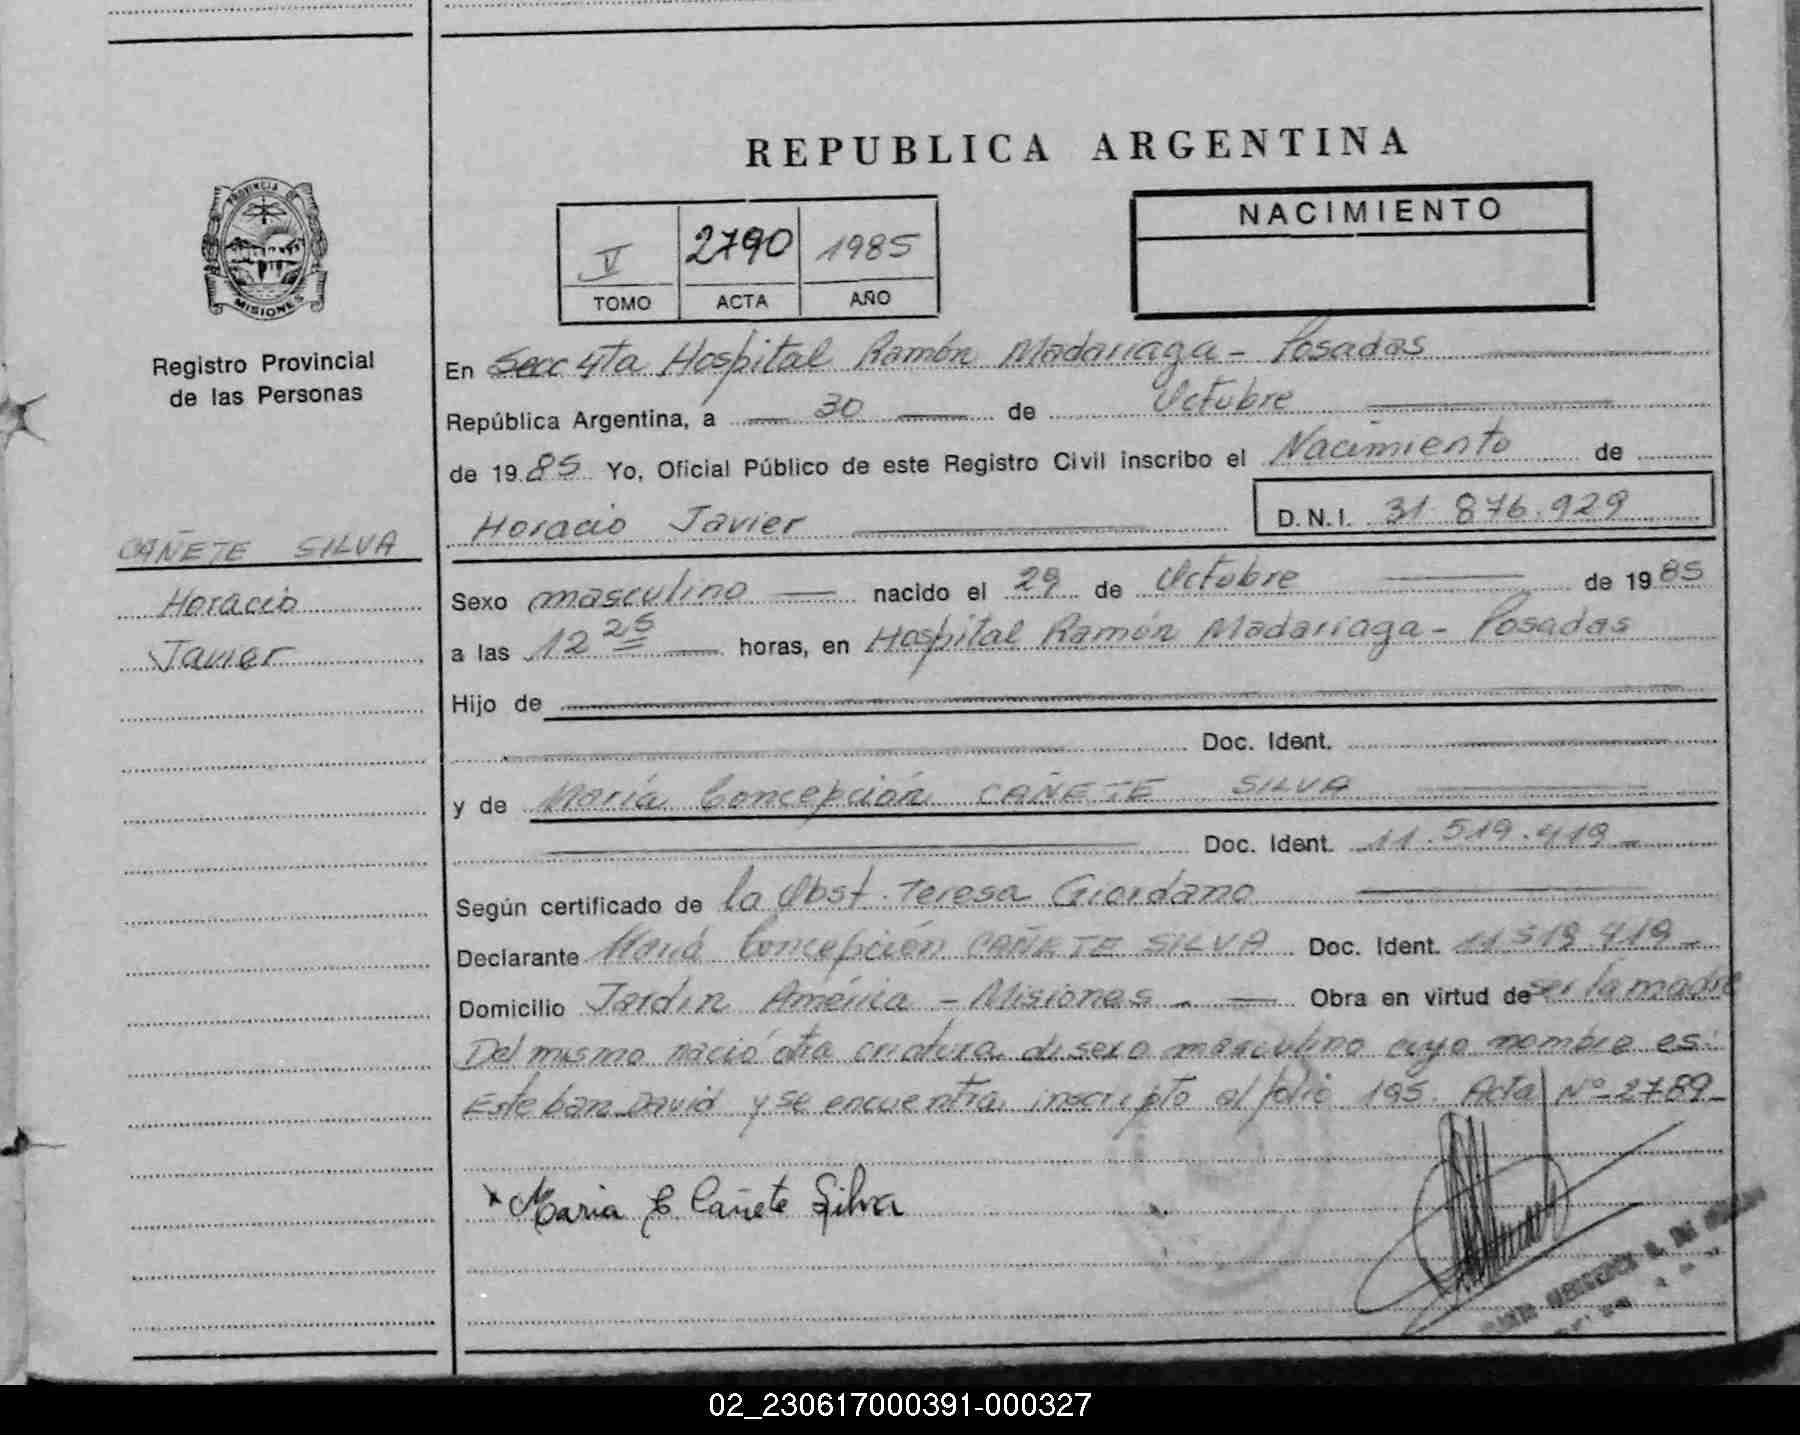 REPUBLICA ARGENTINA
PROVINCIA DE
MISIONES
Registro Provincial
de las Personas
V 2790 1985
TOMO ACTA AÑO
NACIMIENTO
En Secc 4ta Hospital Ramón Madariaga - Posadas
República Argentina, a 30 de Octubre
de 1985 Yo, Oficial Público de este Registro Civil inscribo el Nacimiento de
Horacio Javier D.N.I. 31.876.929
CAÑETE SILVA
Horacio
Javier
Sexo masculino nacido el 29 de Octubre de 1985
a las 12 25 horas, en Hospital Ramón Madariaga - Posadas
Hijo de
Doc. Ident.
y de María Concepción CAÑETE SILVA
Doc. Ident. 11.519.419
Según certificado de la Obst. Teresa Giordano
Declarante María Concepción CAÑETE SILVA Doc. Ident. 11.519.419
Domicilio Jardín América - Misiones - Obra en virtud de ser la madre
Del mismo nació otra criatura de sexo masculino cuyo nombre es:
Esteban David y se encuentra inscripto al folio 195. Acta Nº 2789
Maria C Cañete Silva
02_230617000391-000327